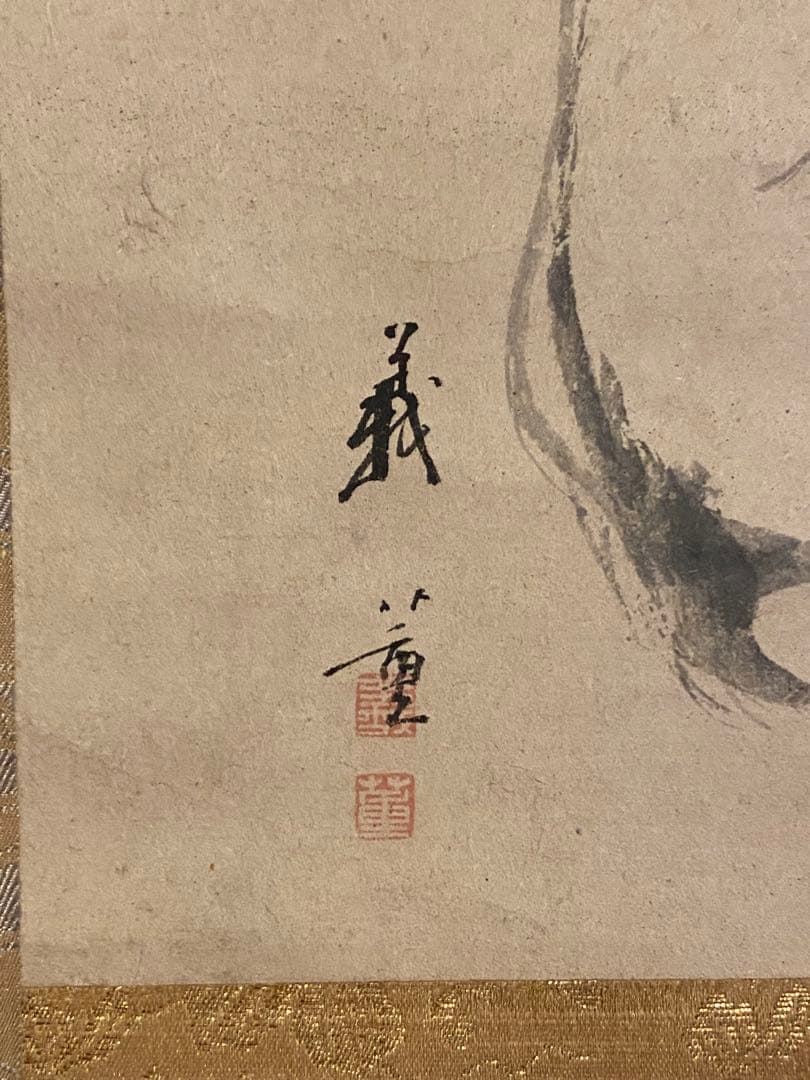 義董
董